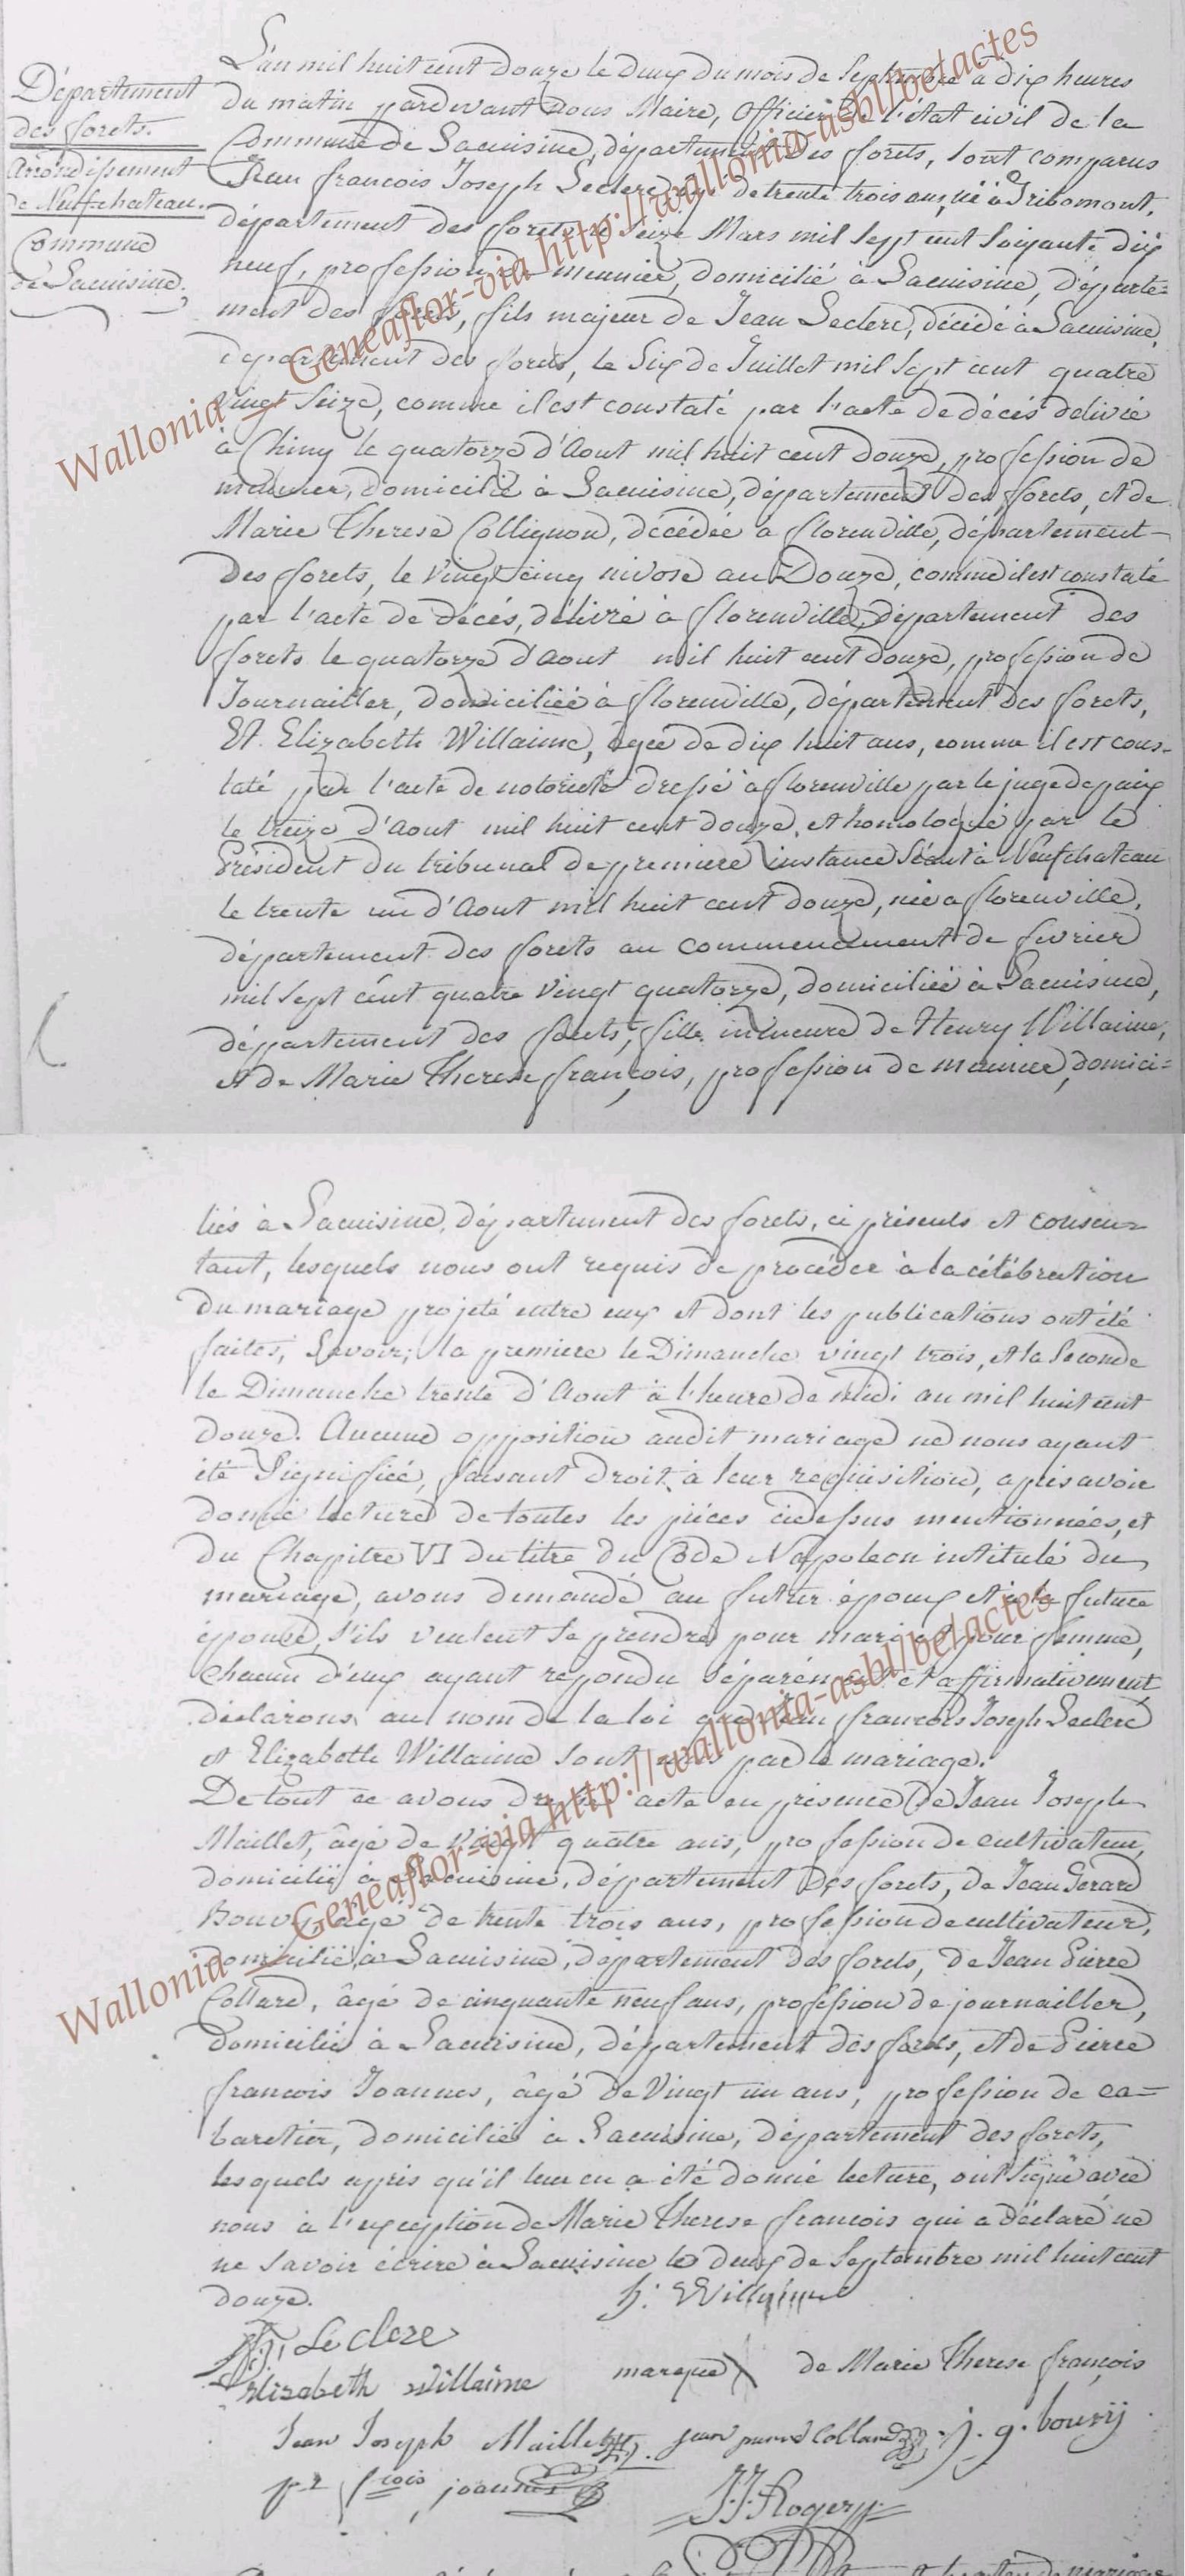 Département
des forets.
arrondissement
de Neufchateau.
Commune
de Lacuisine.
L'an mil huit cent douze le deux du mois de Septembre a dix heures
du matin pardevant nous Maire, officier de l'état civil de la
Commune de Lacuisine, département des forets, sont comparus
Jean francois Joseph Leclerc, agé de trente trois ans, né à Tribomont,
département des forets, le seize Mars mil sept cent soixante dix
neuf, profession de meunier, domicilié à Lacuisine, départe=
ment des forets, fils majeur de Jean Leclerc, décédé à Lacuisine,
département des forets, le Six de Juillet mil sept cent quatre
vingt seize, comme il est constaté par l'acte de décés délivré
à Chiny le quatorze d'Aout mil huit cent douze, profession de
meunier, domicilié à Lacuisine, département des forets, et de
Marie Therese Collignon, décédée a florenville, département
des forets, le vingt cinq nivose an Douze, comme il est constaté
par l'acte de décés, délivré à florenville, département des
forets le quatorze d'Aout mil huit cent douze, profession de
Journailler, domiciliée à florenville, département des forets,
Et Elizabeth Willaime, agée de dix huit ans, comme il est cons-
taté par l'acte de notoriété dressé à florenville par le juge de paix
le treize d'Aout mil huit cent douze, et homologué par le
Président du tribunal de premiere instance séant à Neufchateau
le trente un d'Aout mil huit cent douze, née a florenville,
département des forets au commencement de fevrier
mil sept cent quatre vingt quatorze, domiciliée à Lacuisine,
département des forets, fille mineure de Henry Willaime,
et de Marie Therese françois, profession de meunier, domici=
liés à Lacuisine, département des forets, ci présents et consen=
tant, lesquels nous ont requis de procéder à la célébration
du mariage projeté entre eux et dont les publications ont été
faites, Savoir; la premiere le Dimanche vingt trois, et la Seconde
le Dimanche trente d'Aout à l'heure de midi an mil huit cent
douze. Aucune opposition audit mariage ne nous ayant
été Signifiée, faisant droit à leur requisition, après avoir
donné lecture de toutes les piéces cidessus mentionnées, et
du Chapitre VI du titre du Code Napoleon intitulé du
mariage, avons demandé au futur époux et à la future
épouse, s'ils veulent se prendre pour mari et pour femme,
Chacun d'eux ayant repondu séparément et affirmativement
déclarons au nom de la loi que Jean francois Joseph Leclerc
et Elizabeth Willaime sont unis par le mariage.
De tout ce avons dressé acte en présence de Jean Joseph
Maillet, âgé de vingt quatre ans, profession de cultivateur,
domicilié à Lacuisine, département des forets, de Jean Gerard
Bouvy, agé de trente trois ans, profession de cultivateur,
domicilié à Lacuisine, département des forets, de Jean Pierre
Collard, âgé de cinquante neuf ans, profession de journailler,
domicilié à Lacuisine, département des forets, et de Pierre
francois Joannes, âgé de vingt un ans, profession de ca=
baretier, domicilié à Lacuisine, département des forets,
lesquels après qu'il leur en a été donné lecture, ont signé avec
nous à l'exception de Marie Therese francois qui a déclaré ne
ne savoir écrire à Lacuisine le deux de Septembre mil huit cent
douze.
h: Willaime
Leclere
Elizabeth Willaime
marque de Marie Therese françois
Jean Joseph Maillet
jean pierre Collard
j. g. bouvÿ
pre frcois joannes
J.J. Rogery
Wallonia – Geneaflor-via http://wallonia-asbl/be/actes
Wallonia – Geneaflor-via http://wallonia-asbl/be/actes